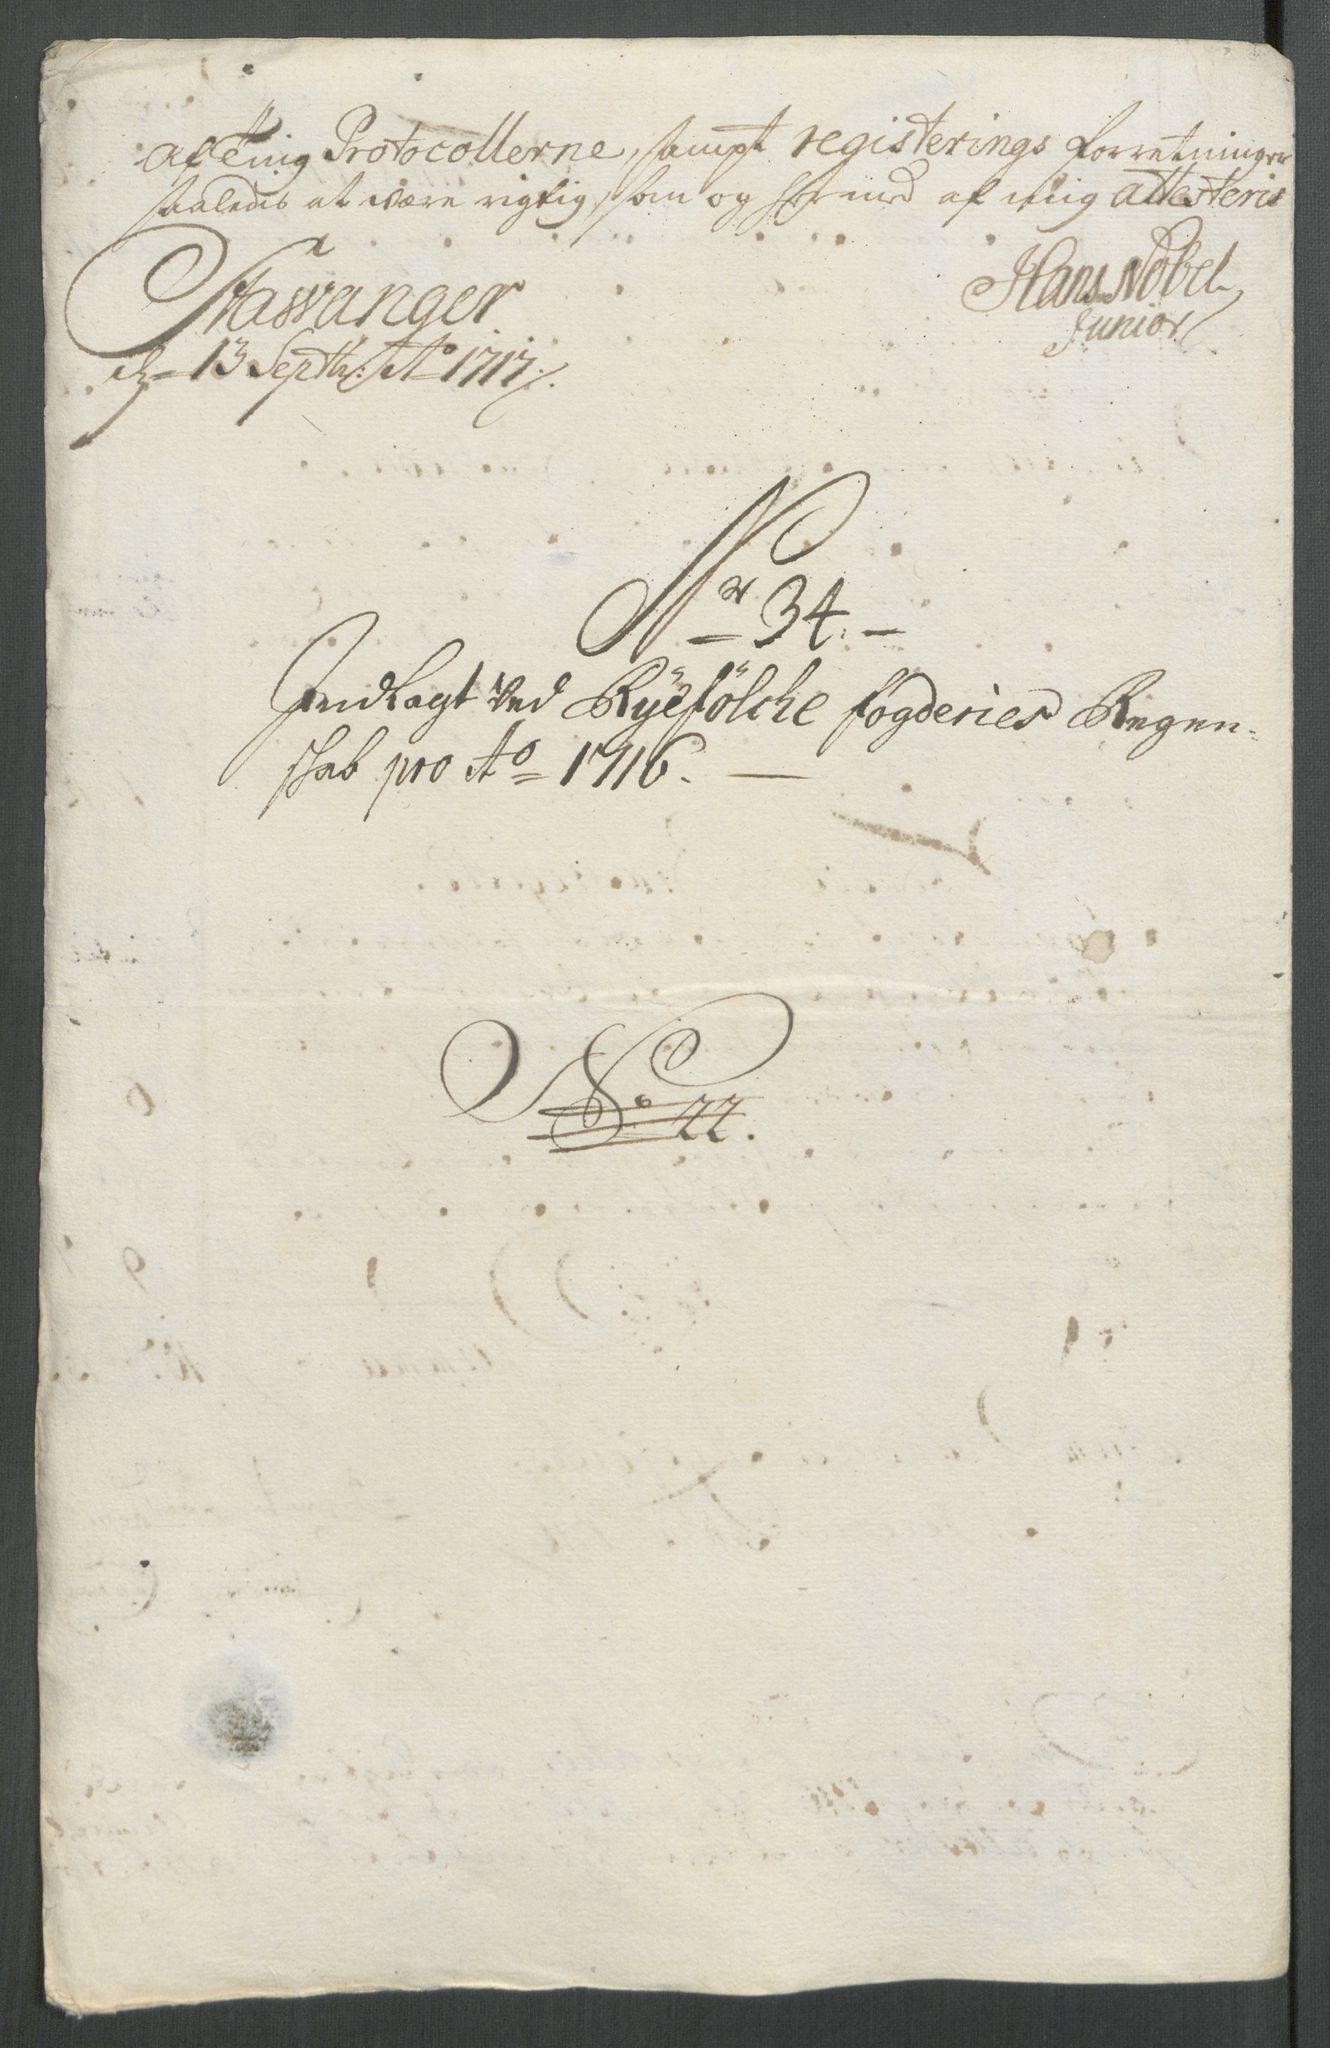 af Ting Protocollerne, sampt registerings forretninger
saaledis at være rigtig, som og hermed af mig attesteris
Stavanger
d. 13 Septbr: Ao 1717.
Hans Nobel
Junior
Nr 34.
Indlagt Ved Ryefølche fogderies Regen-
skab pro Ao 1716.
No 22.